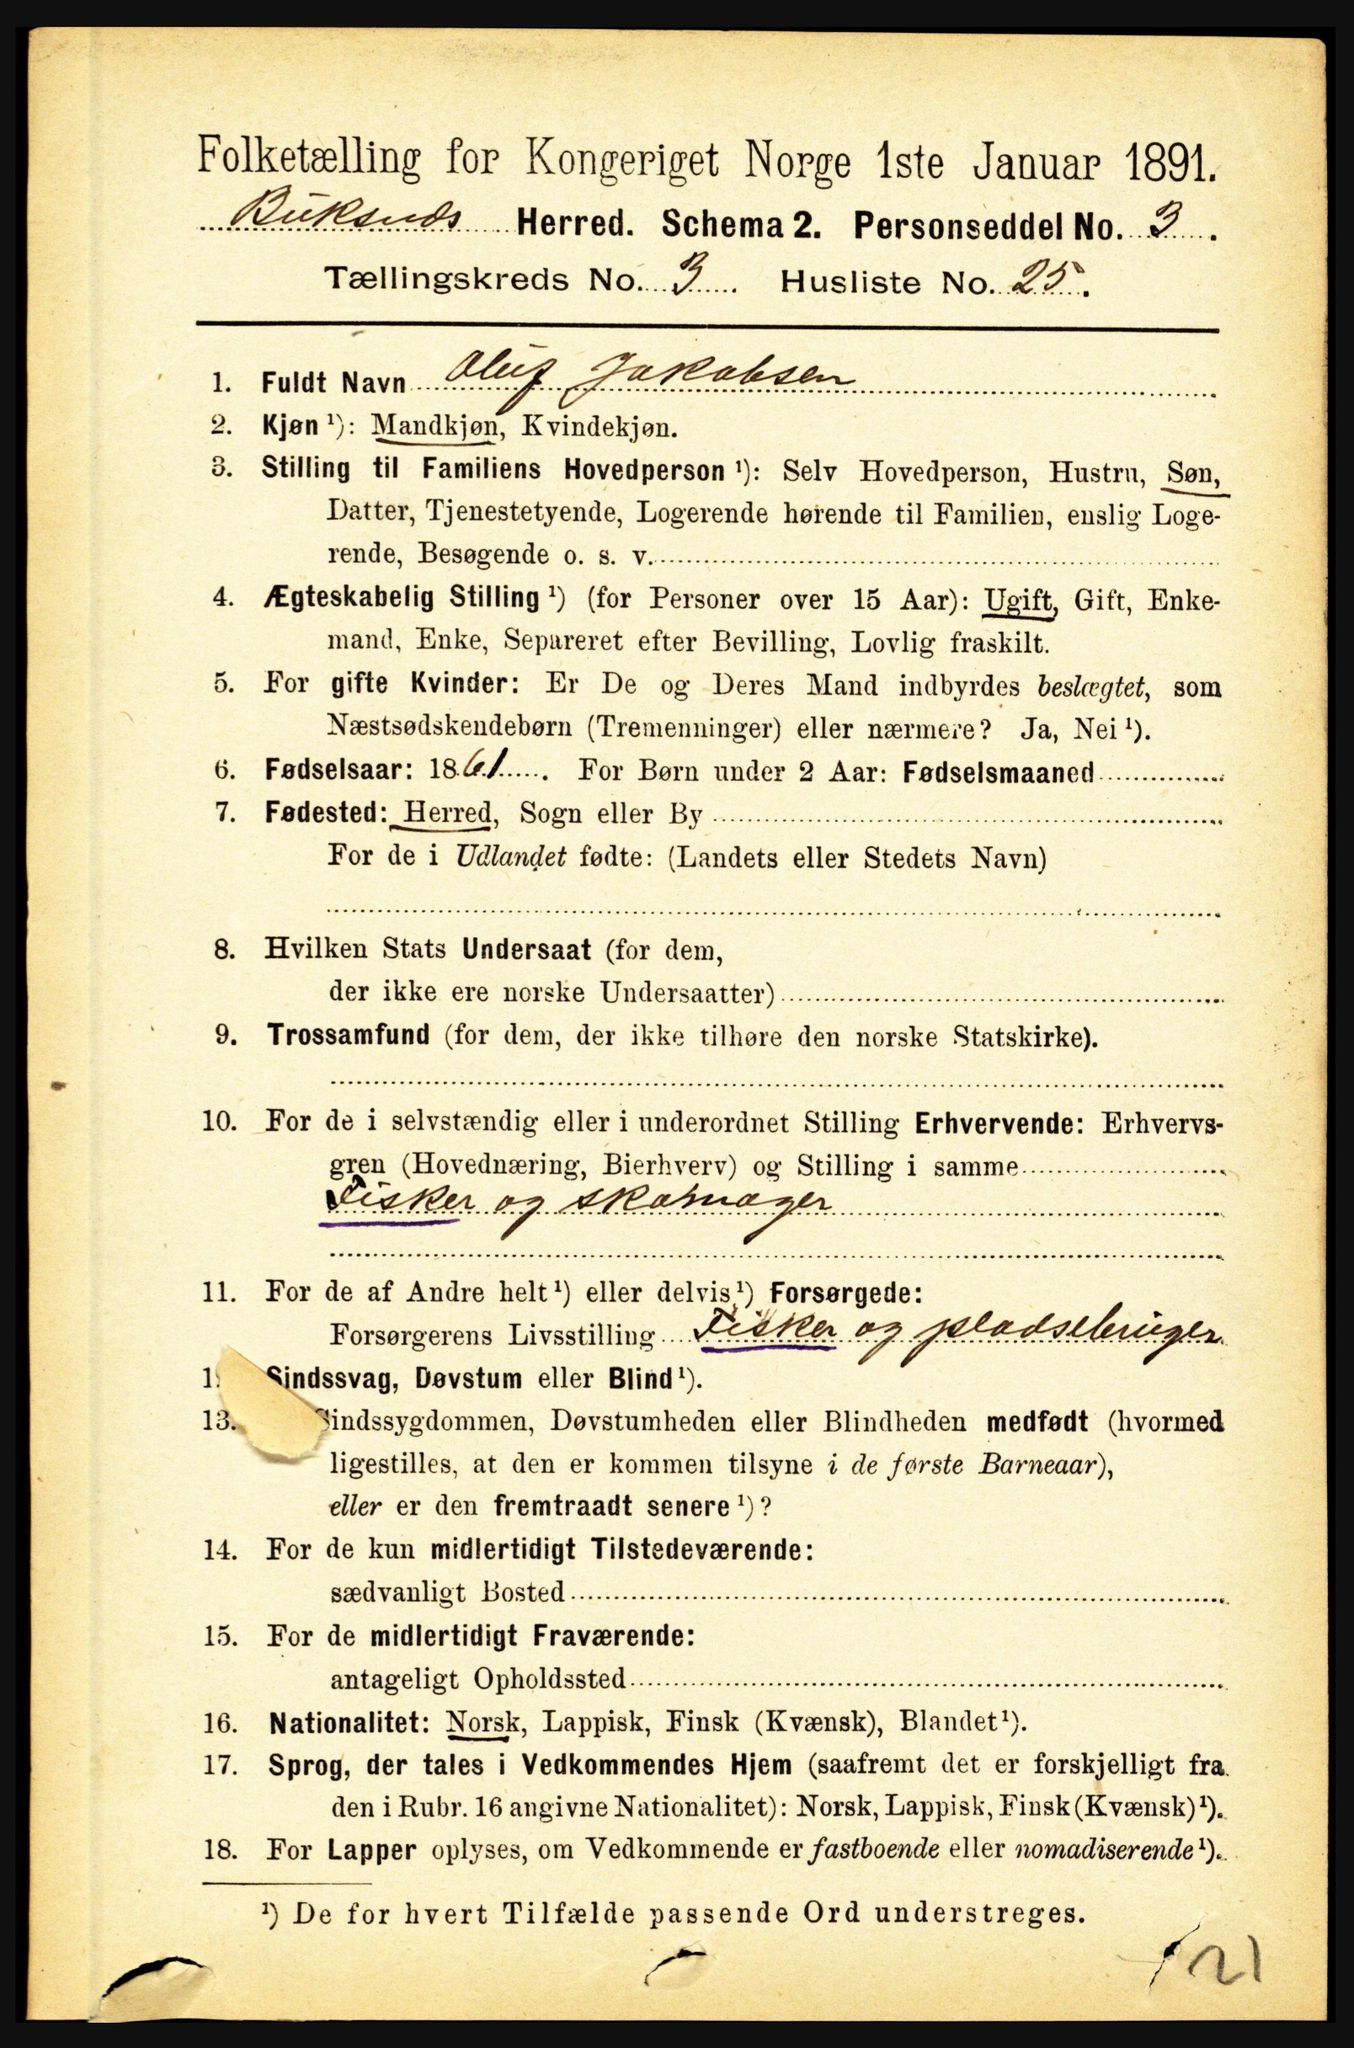 Folketælling for Kongeriget Norge 1ste Januar 1891.
Buksnæs Herred. Schema 2. Personseddel No. 3.
Tællingskreds No. 3. Husliste No. 25.
1. Fuldt Navn Oluf Jakobsen
2. Kjøn ¹): Mandkjøn, Kvindekjøn.
3. Stilling til Familiens Hovedperson ¹): Selv Hovedperson, Hustru, Søn,
Datter, Tjenestetyende, Logerende hørende til Familien, enslig Loge-
rende, Besøgende o. s. v.
4. Ægteskabelig Stilling ¹) (for Personer over 15 Aar): Ugift, Gift, Enke-
mand, Enke, Separeret efter Bevilling, Lovlig fraskilt.
5. For gifte Kvinder: Er De og Deres Mand indbyrdes beslægtet, som
Næstsødskendebørn (Tremenninger) eller nærmere? Ja, Nei ¹).
6. Fødselsaar: 1861. For Børn under 2 Aar: Fødselsmaaned
7. Fødested: Herred, Sogn eller By
For de i Udlandet fødte: (Landets eller Stedets Navn)
8. Hvilken Stats Undersaat (for dem,
der ikke ere norske Undersaatter)
9. Trossamfund (for dem, der ikke tilhøre den norske Statskirke).
10. For de i selvstændig eller i underordnet Stilling Erhvervende: Erhvervs-
gren (Hovednæring, Bierhverv) og Stilling i samme
Fisker og skomager
11. For de af Andre helt ¹) eller delvis ¹) Forsørgede:
Forsørgerens Livsstilling Fisker og pladsebruger
1 Sindssvag, Døvstum eller Blind ¹).
13. Sindssygdommen, Døvstumheden eller Blindheden medfødt (hvormed
ligestilles, at den er kommen tilsyne i de første Barneaar),
eller er den fremtraadt senere ¹)?
14. For de kun midlertidigt Tilstedeværende:
sædvanligt Bosted
15. For de midlertidigt Fraværende:
antageligt Opholdssted
16. Nationalitet: Norsk, Lappisk, Finsk (Kvænsk), Blandet ¹).
17. Sprog, der tales i Vedkommendes Hjem (saafremt det er forskjelligt fra
den i Rubr. 16 angivne Nationalitet): Norsk, Lappisk, Finsk (Kvænsk) ¹).
18. For Lapper oplyses, om Vedkommende er fastboende eller nomadiserende ¹).
¹) De for hvert Tilfælde passende Ord understreges.